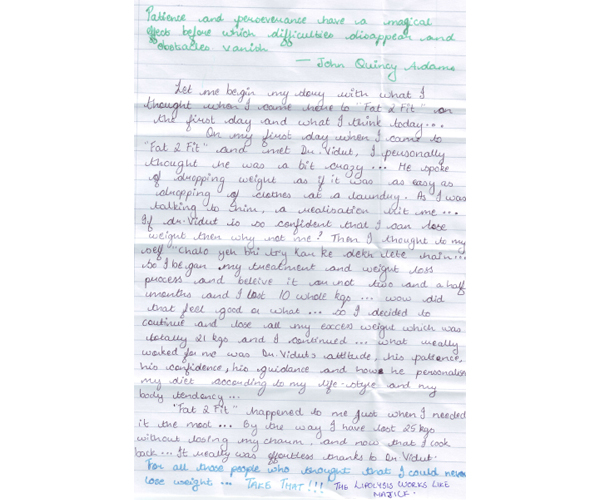 Patience and perseverance have a magical
effect before which difficulties disappear and
obstacles vanish
— John Quincy Adams
Let me begin my story with what I
thought when I came here to "Fat 2 Fit" on
the first day and what I think today...
On my first day when I came to
"Fat 2 Fit" and met Dr. Vidut, I personally
thought he was a bit crazy... He spoke
of dropping weight as if it was as easy as
dropping of clothes at a laundry. As I was
talking to him, a realisation hit me...
If dr. Vidut is so confident that I can lose
weight then why not me? Then I thought to my
self "chalo yeh bhi try kar ke dekh lete hain...
So I began my treatment and weight loss
process and beleive it or not two and a half
months and I lost 10 whole kgs... wow did
that feel good or what... so I decided to
continue and lose all my excess weight which was
totally 21 kgs and I continued... what really
worked for me was Dr. Vidut's attitude, his patience,
his confidence, his guidance and how he personalen
my diet according to my life-style and my
body tendency...
"Fat 2 Fit" happened to me just when I needed
it the most... By the way I have lost 25 kgs
without losing my charm. and now that I look
back... It really was effortless thanks to Dr. Vidut.
For all those people who thought that I could never
lose weight... TAKE THAT!!! THE LIPOLYSIS WORKS LIKE
MAJICK.